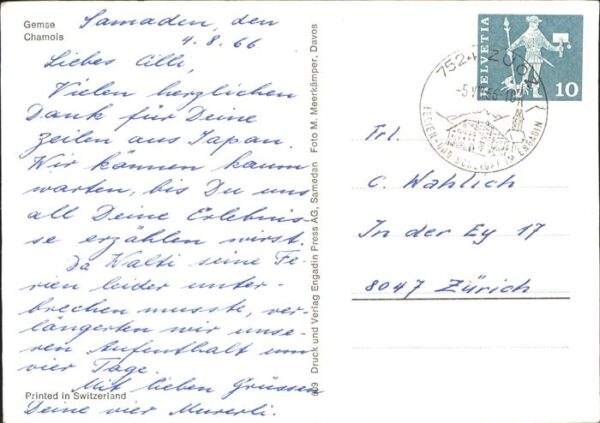 Gemse
Chamois
Samaden, den
4.8.66
Liebes Cilli,
Vielen herzlichen
Dank für Deine
Zeilen aus Japan.
Wir können kaum
warten, bis Du uns
all Deine Erlebnis-
se erzählen wirst.
Da Walti seine Fe-
rien leider unter-
brechen musste, ver-
längerten wir unse-
ren Aufenthalt um
vier Tage.
Mit lieben Grüssen
Deine vier Murerli.
Printed in Switzerland
Druck und Verlag Engadin Press AG, Samedan Foto M. Meerkämper, Davos
HELVETIA
10
7524 ZUOZ
IM ENGADIN
Frl.
C. Wahlich
In der Ey 17
8047 Zürich